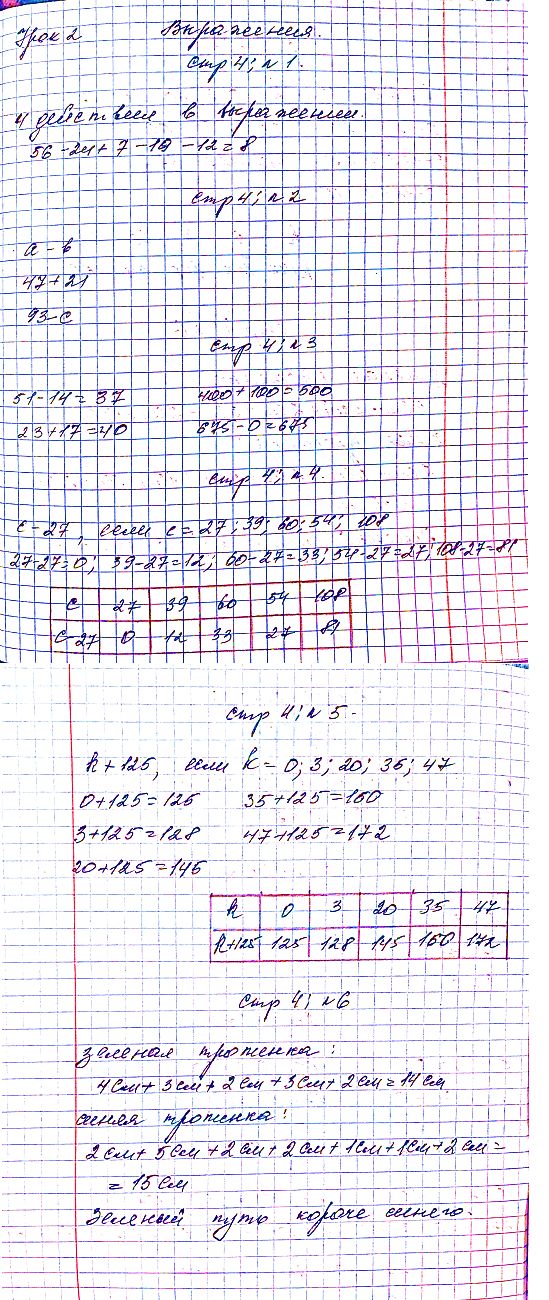 Урок 2 Выражения.
стр 4; №1.
4 действия в выражении.
56-24+7-19-12=8
стр 4; №2
а-в
47+21
93-с
стр 4; №3
51-14=37 400+100=500
23+17=40 675-0=675
стр 4; №4.
с-27, если с=27; 39; 60; 54; 108
27-27=0; 39-27=12; 60-27=33; 54-27=27; 108-27=81
с 27 39 60 54 108
с-27 0 12 33 27 81
стр 4; №5.
k+125, если k=0; 3; 20; 35; 47
0+125=125 35+125=160
3+125=128 47+125=172
20+125=145
k 0 3 20 35 47
k+125 125 128 145 160 172
стр 4; №6
зеленая тропинка:
4см+3см+2см+3см+2см=14см
синяя тропинка:
2см+5см+2см+2см+1см+1см+2см=
=15см
Зеленый путь короче синего.